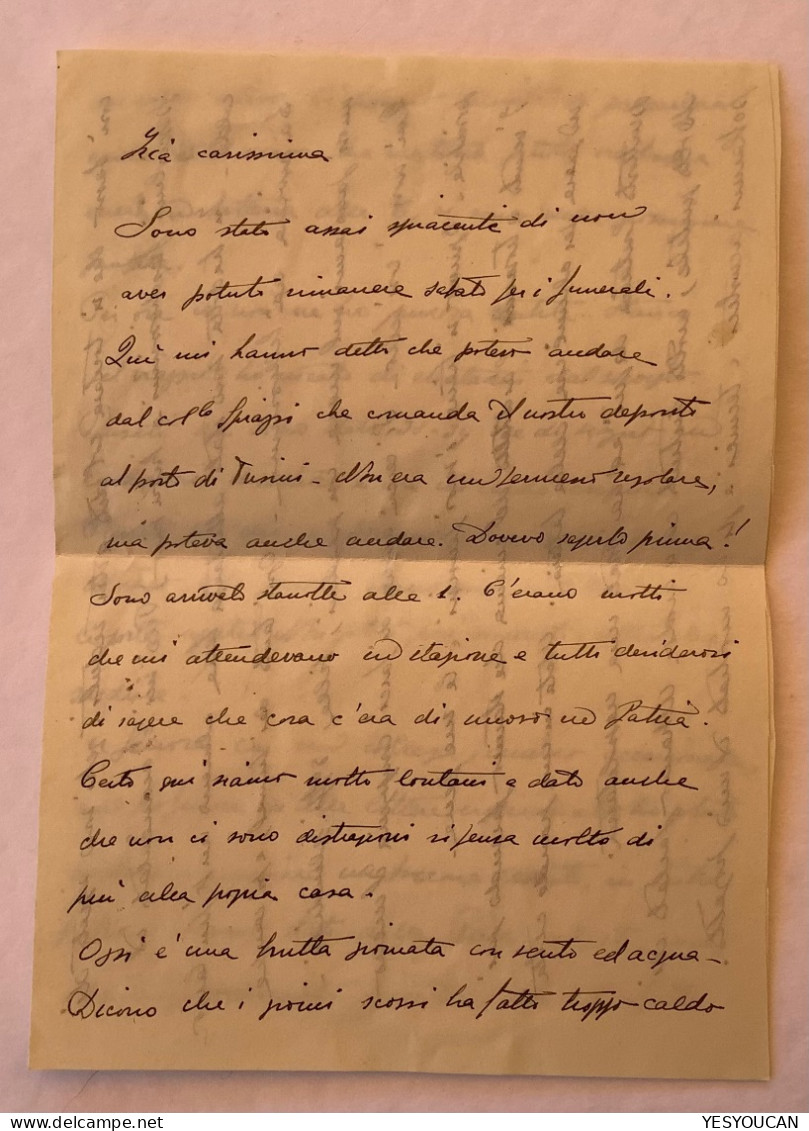 Zia carissima
Sono stato assai spiacente di non
aver potuto rimanere sabato per i funerali.
Qui mi hanno detto che potevo andare
dal coll<sup>lo</sup> Spiazzi che comanda il nostro deposito
al posto di - Non era un permesso regolare,
ma poteva anche andare. Dovevo saperlo prima!
Sono arrivato stanotte alle 1. C'erano molti
che mi attendevano in stazione e tutti desiderosi
di sapere che cosa c'era di nuovo in Patria.
Certo qui siamo molto lontani e dato anche
che non ci sono distrazioni si pensa molto di
più alla propria casa.
Oggi è una brutta giornata con vento ed acqua -
Dicono che i giorni scorsi ha fatto troppo caldo
YESYOUCAN